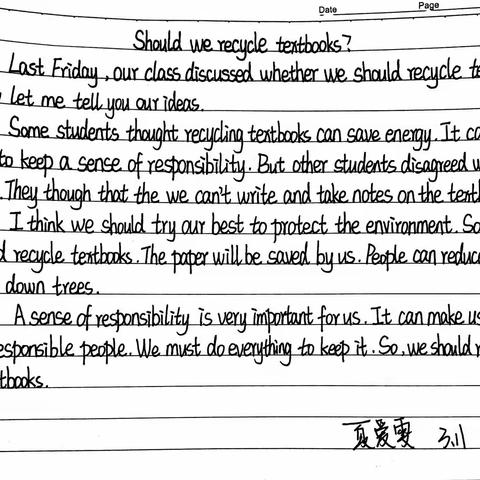 Date Page
Should we recycle textbooks?
Last Friday, our class discussed whether we should recycle te
let me tell you our ideas.
Some students thought recycling textbooks can save energy. It ca
to keep a sense of responsibility. But other students disagreed w
. They though that the we can't write and take notes on the text
I think we should try our best to protect the environment. So
d recycle textbooks. The paper will be saved by us. People can reduc
down trees.
A sense of responsibility is very important for us. It can make us
esponsible people. We must do everything to keep it. So, we should r
tbooks.
夏爱雯 3.11